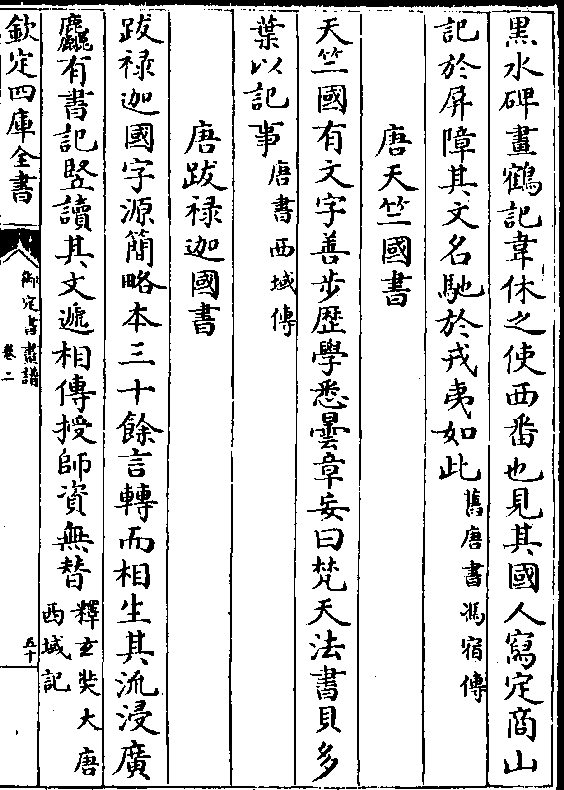 黒水碑畫鶴記韋休之使西番也見其國人寫定商山
記於屏障其文名馳於戎夷如此舊唐書馮宿傳
唐天竺國書
天竺國有文字善步歴學悉曇章妄曰梵天法書貝多
葉以記事唐書西域傳
唐跋禄迦國書
跋禄迦國字源簡略本三十餘言轉而相生其流浸廣
麤有書記竪讀其文遞相傳授師資無替釋玄奘大唐
西域記
欽定四庫全書
御定書畫譜
卷二
五十